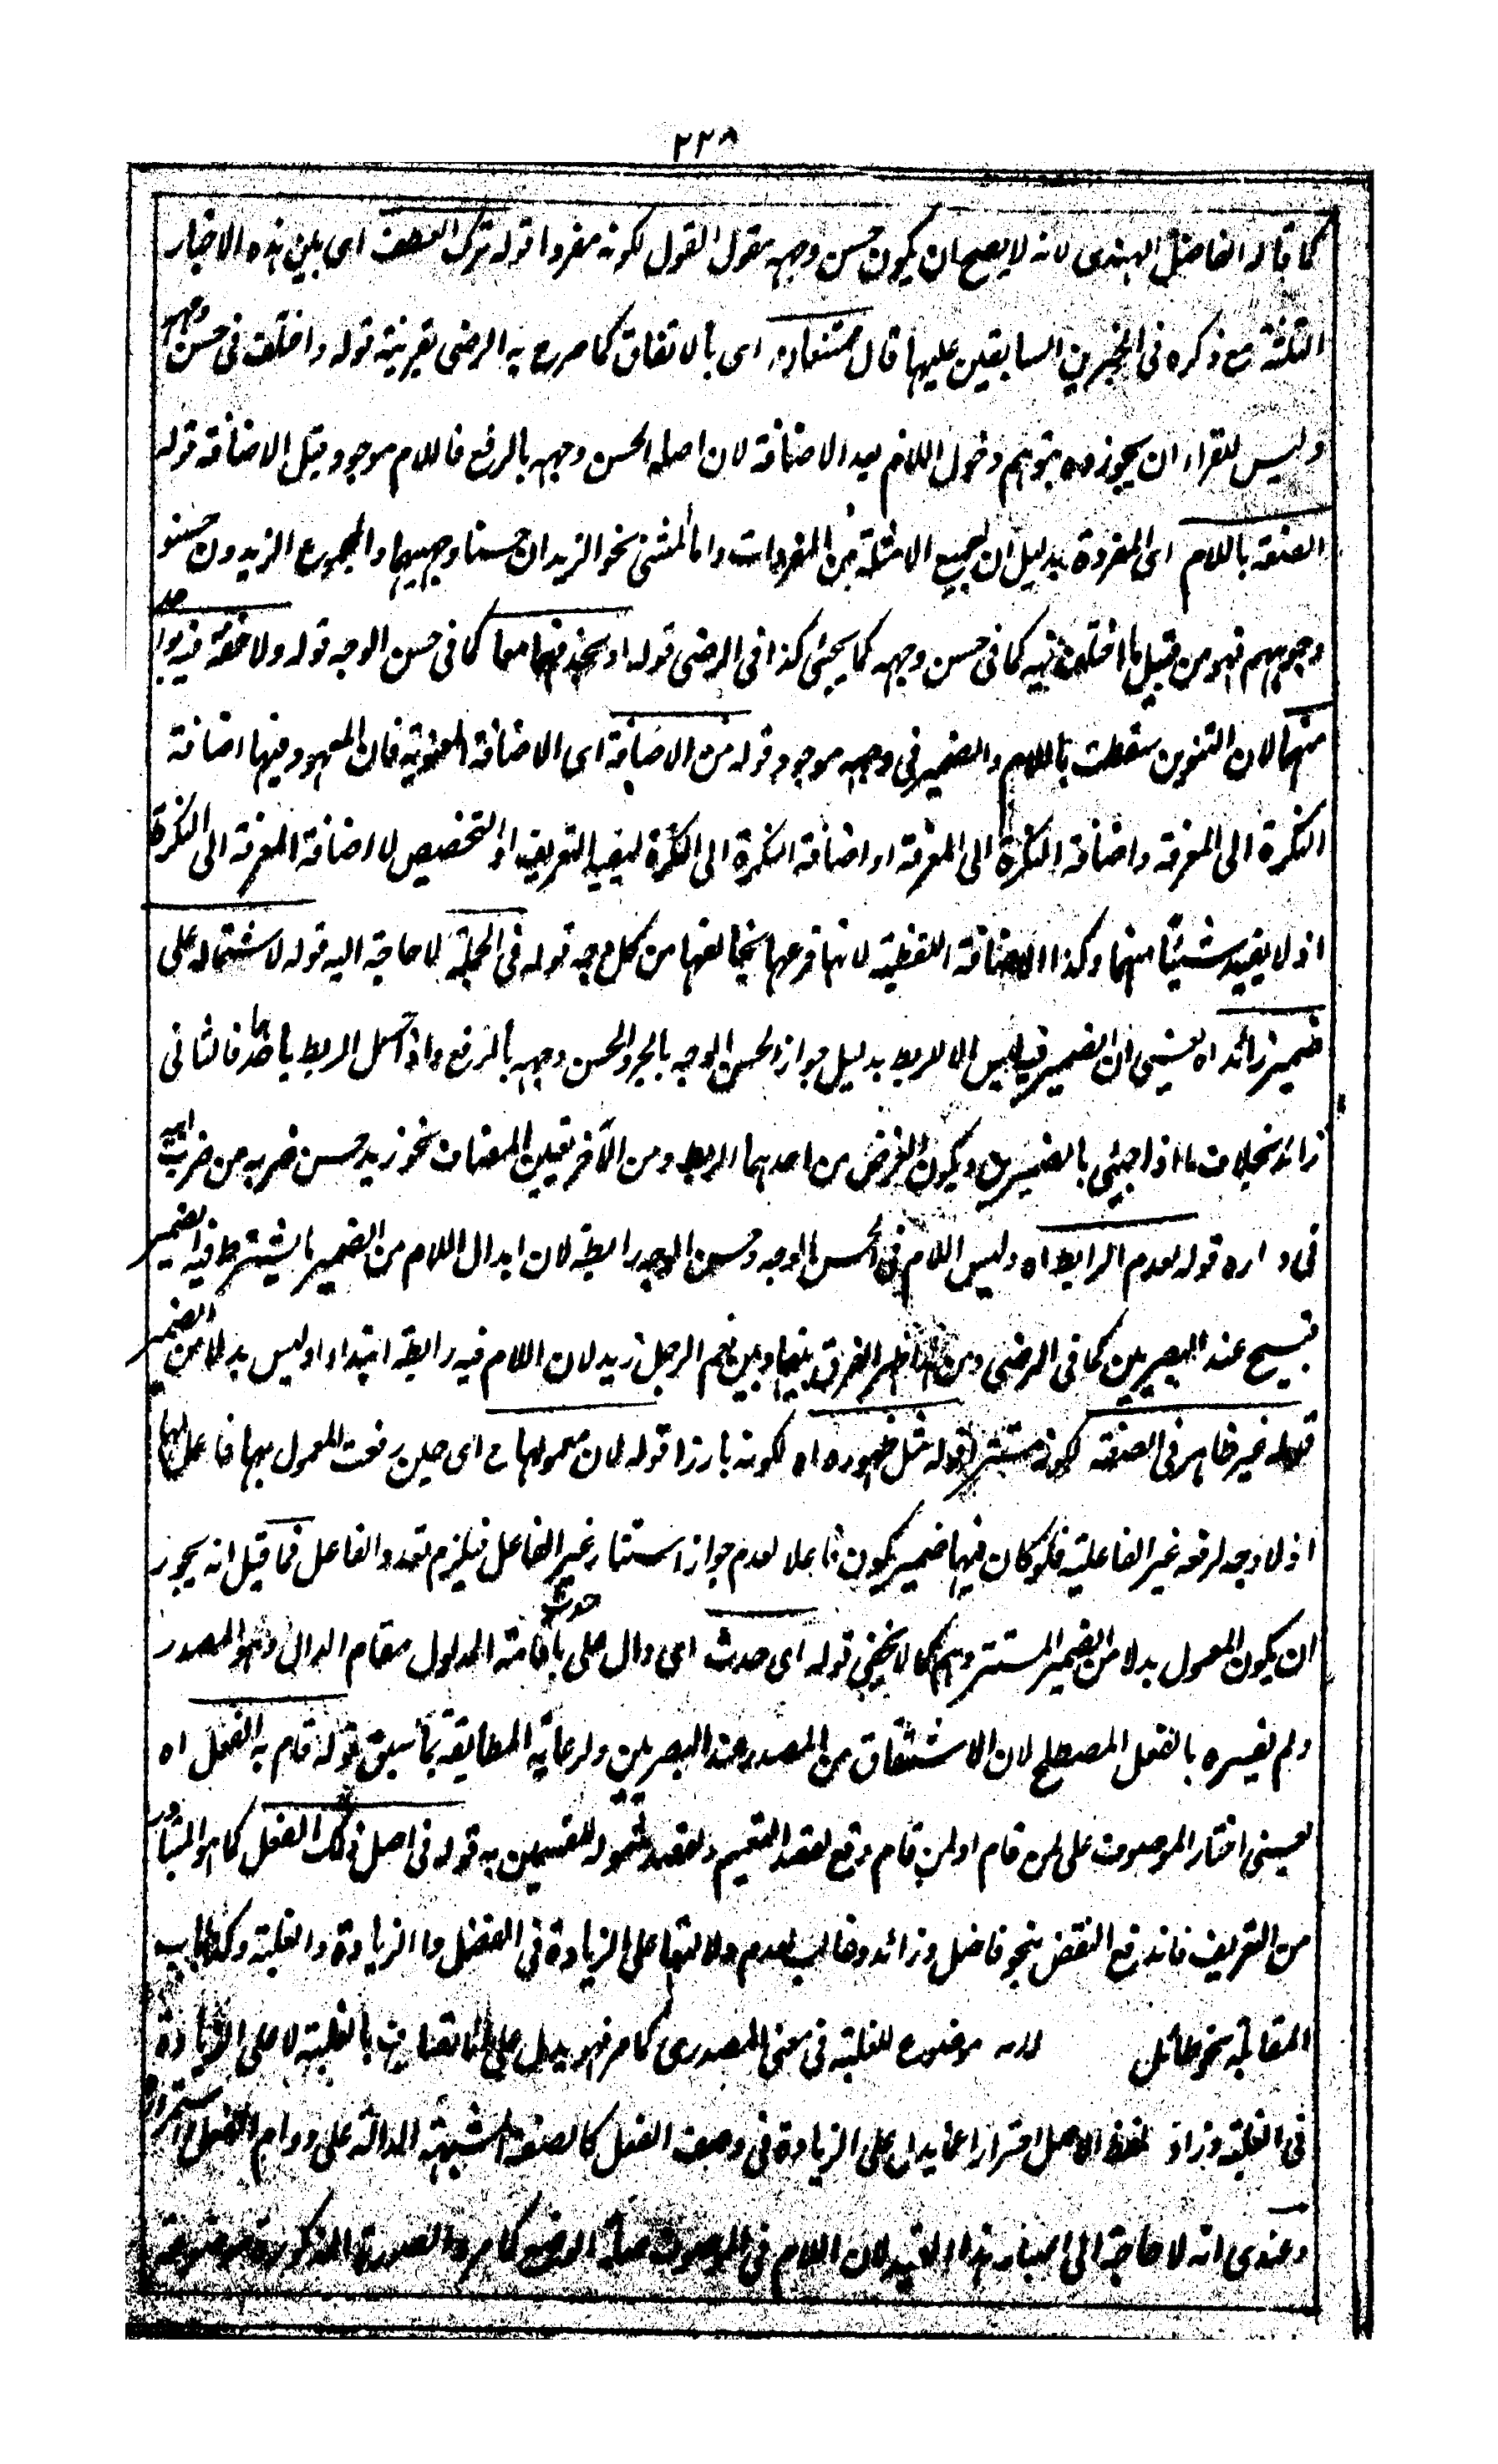 ٢٢٨
كما قاله الفاضل الهندى لانه لا يصح ان يكون حسن وجهه مقول القول لكونه مفردا قوله ترك العطف اى بين هذه الاخبار
الثلثة مع ذكره فى الخبرين السابقين عليها قال ممتنعان اى بالاتفاق كما صرح به الرضى بقرينة قوله واختلف فى حسن وجهه
وليس للفراء ان يجوزه بتوهم دخول اللام بعد الاضافة لان اصله الحسن وجهه بالرفع فاللام موجود قبل الاضافة قوله
الصفة باللام اى المفردة بدليل ان جميع الامثلة من المفردات واما المثنى نحو الزيدان حسنا وجهيهما والمجموع الزيدون حسنو
وجوههم فهو من قبيل ما اختلف فيه كما فى حسن وجهه كما يجئ كذا فى الرضى قوله او بحذفهما معا كما فى حسن الوجه قوله ولا خفة فيه بواحد
منهما لان التنوين سقطت باللام والضمير فى وجهه موجود قوله من الاضافة اى الاضافة المعنوية فان المعهود فيها اضافة
النكرة الى المعرفة واضافة النكرة الى المعرفة او اضافة النكرة الى النكرة ليفيد التعريف او التخصيص لا اضافة المعرفة الى النكرة
اذ لا يفيد شيئا منهما وكذا الاضافة اللفظية لانها فرعها يخالفها من كل وجه قوله فى الجملة لا حاجة اليه قوله لاشتماله على
ضمير زائد اه يعنى ان الضمير فيه ليس الا للربط بدليل جواز الحسن الوجه بالجر والحسن وجهه بالرفع واذا حصل الربط باحدهما فالثانى
زائد بخلاف ما اذا جيئ بالضميرين ويكون الغرض من احدهما الربط ومن الآخر تعيين المضاف نحو زيد حسن ضربه من ضرب ابيه
فى داره قوله لعدم الرابط اه وليس اللام فى الحسن الوجه وحسن الوجه رابطة لان ابدال اللام من الضمير ما يشترط فيه الضمير
قبيح عند البصريين كما فى الرضى ومن هذا ظهر الفرق بينهما وبين نعم الرجل زيد لان اللام فيه رابطة ابتداء وليس بدلا من الضمير
قوله غير ظاهر فى الصفة لكونه مستترا قوله مثل ظهوره اه لكونه بارزا قوله لان معمولها ح اى حين رفعت المعمول بها فاعل لها
اذ لا وجه لرفعه غير الفاعلية فلو كان فيها ضمير يكون فاعلا لعدم جواز استتار غير الفاعل فيلزم تعدد الفاعل فما قيل انه يجوز
ان يكون المعمول بدلا من الضمير المستتر وهم كما لا يخفى قوله اى حدث اى دال على حدث باقامة المدلول مقام الدال وهو المصدر
ولم يفسره بالفعل المصطلح لان الاشتقاق من المصدر عند البصريين ولرعاية المطابقة بما سبق قوله قام به الفعل اه
يعنى اختار الموصوف على لمن قام او لمن قام وقع لقصد التعميم ولقصد شموله للقسمين به قوله فى اصل ذلك الفعل كما هو المتبادر
من التعريف فاندفع النقض بنحو فاضل وزائد وغالب لعدم دلالتها على الزيادة فى الفضل والزيادة والغلبة وكذا باب
المقابلة نحو طائل لانه موضوع للغلبة فى معنى المصدرى كما مر فهو يدل على الاتصاف بالغلبة لا على الزيادة
فى الغلبة وزاد لفظ الاصل احترازا عما يدل على الزيادة فى وصف الفعل كالصفة المشبهة الدالة على دوام الفعل واستمراره
وعندى انه لا حاجة الى اعتبار هذا القيد لان اللام فى الموصوف صلة الوضع كما مر والصورة المذكورة موضوعة